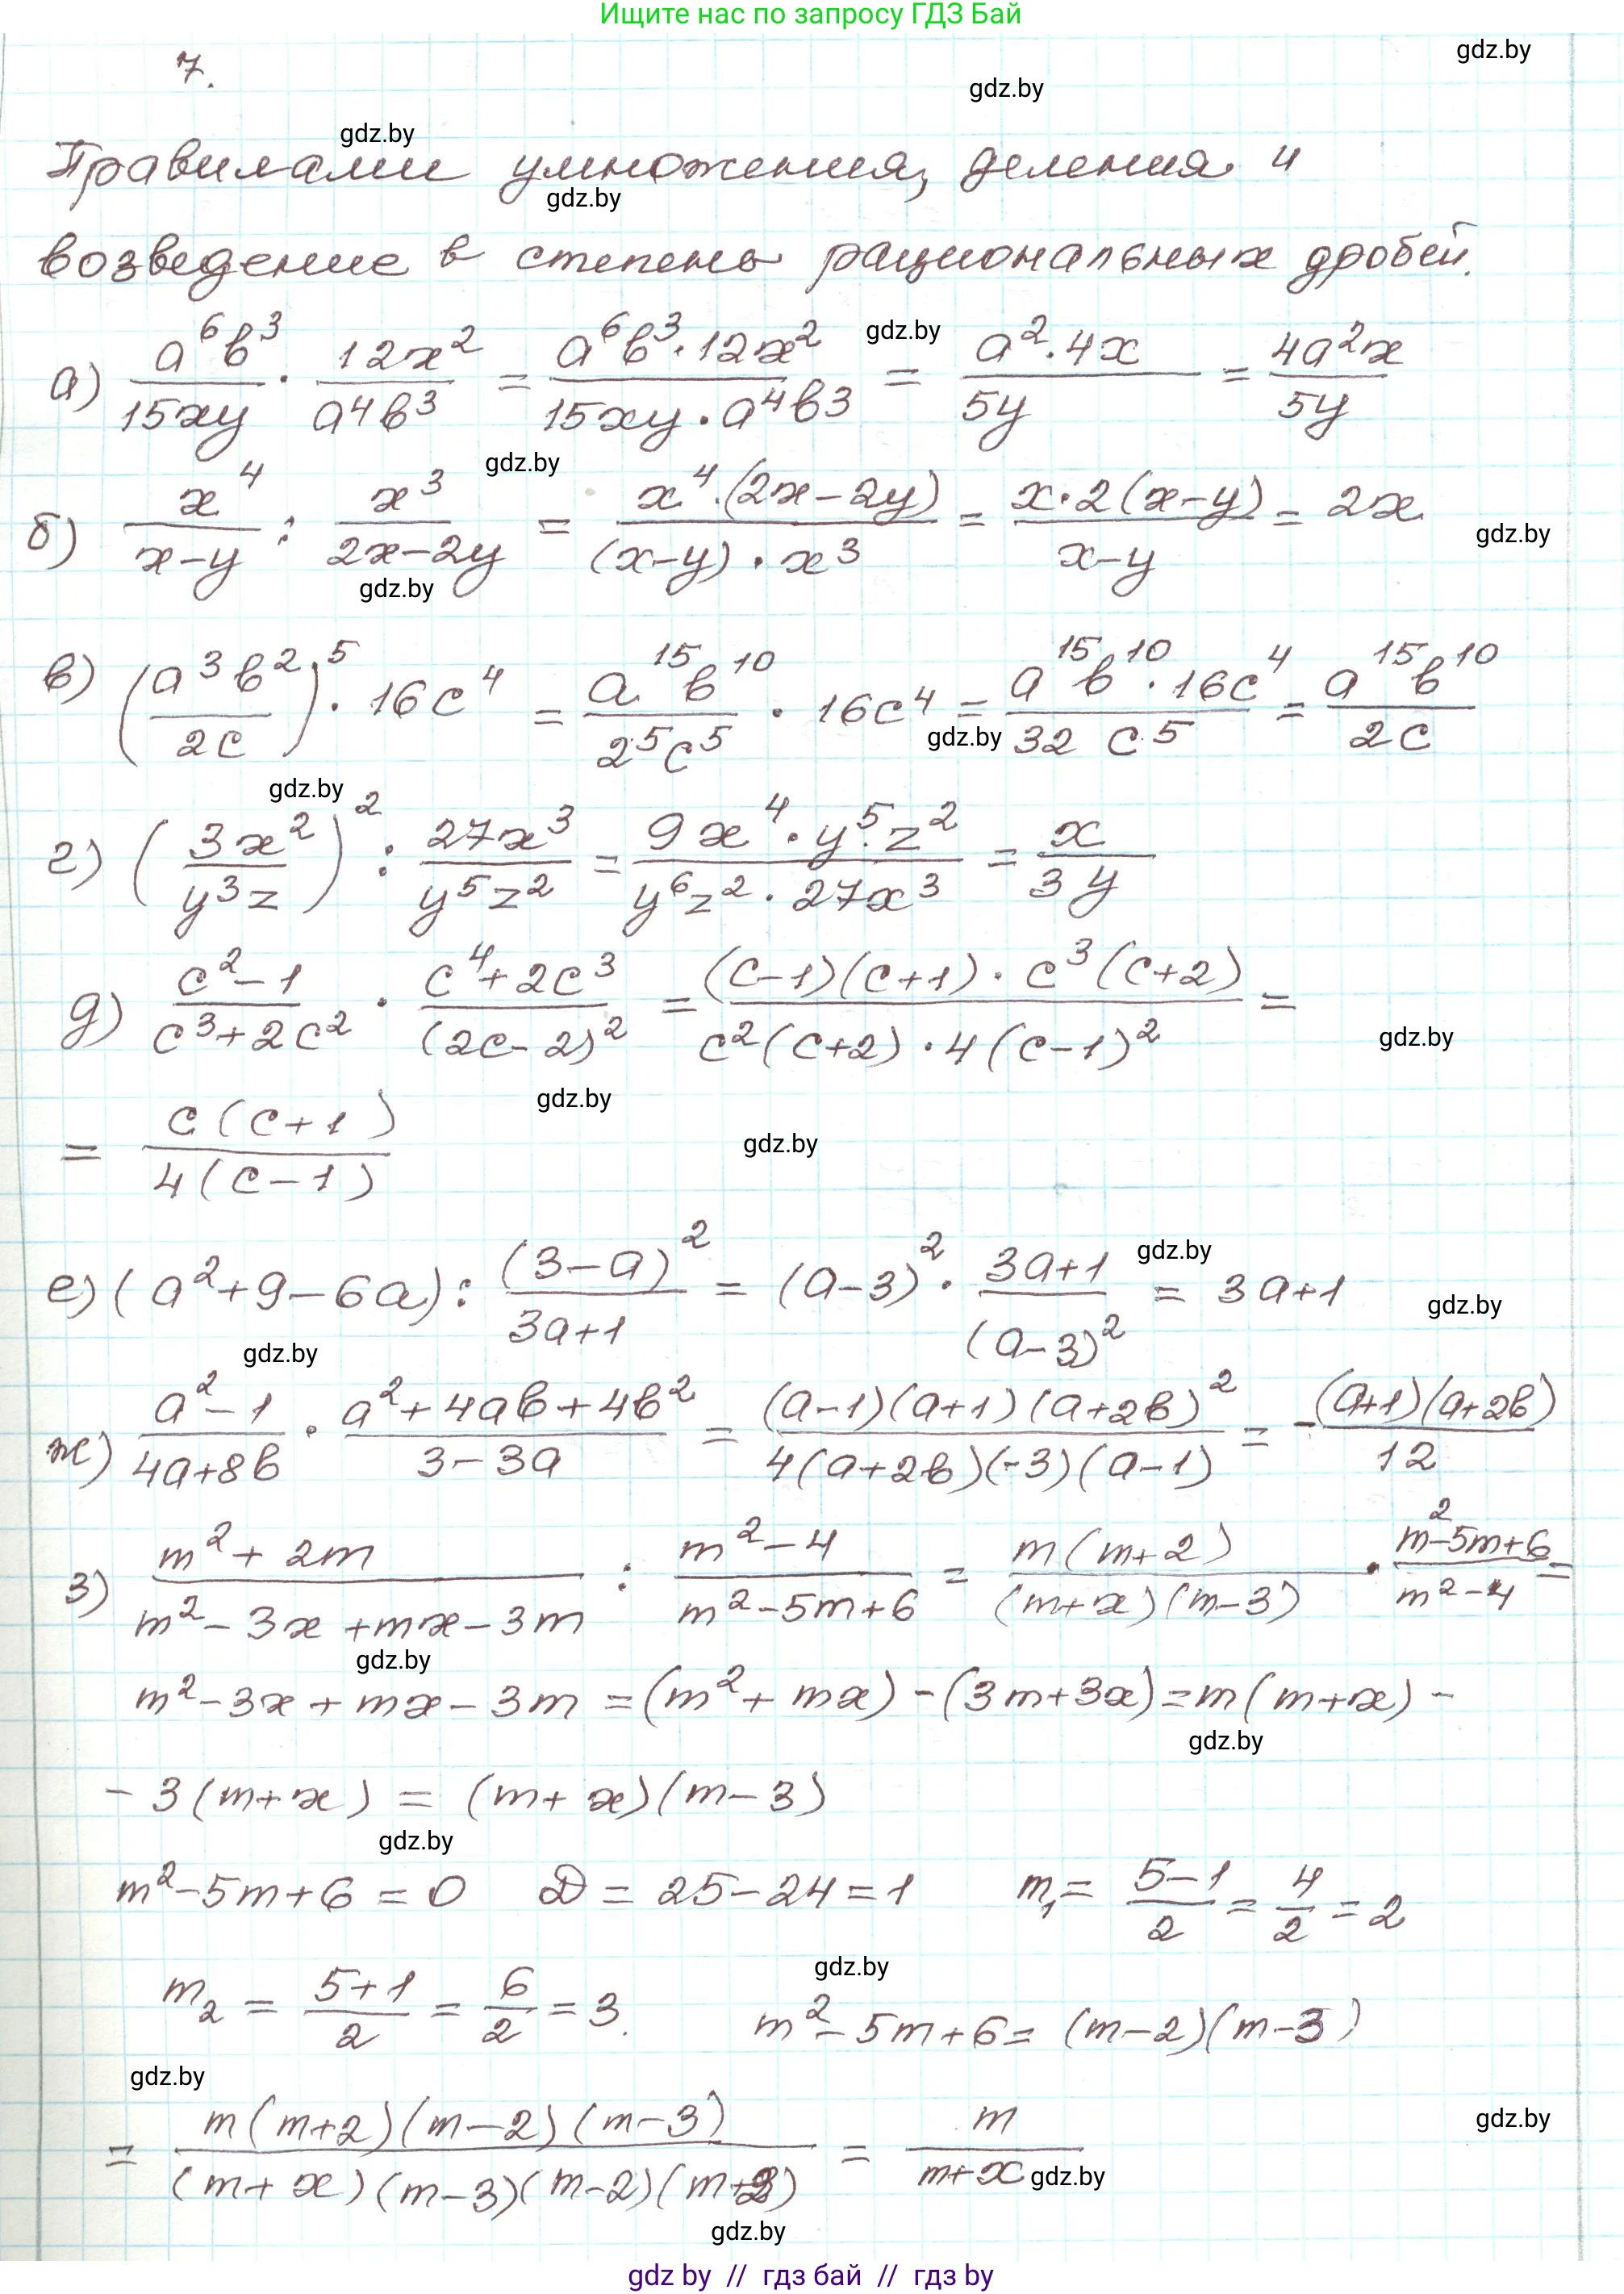 Ищите нас по запросу ГДЗ Бай
gdz.by
7.
gdz.by
gdz.by
Правилами умножения, деления и
gdz.by
возведение в степень рациональных дробей.
а) a⁶b³/15xy · 12x²/a⁴b³ = a⁶b³·12x²/15xy·a⁴b3 = a²·4x/5y = 4a²x/5y
gdz.by
gdz.by
б) x⁴/x-y : x³/2x-2y = x⁴·(2x-2y)/(x-y)·x³ = x·2(x-y)/x-y = 2x
gdz.by
gdz.by
в) (a³b²/2c)⁵ · 16c⁴ = a¹⁵b¹⁰/2⁵c⁵ · 16c⁴ = a¹⁵b¹⁰·16c⁴/32 c⁵ = a¹⁵b¹⁰/2c
gdz.by
gdz.by
г) (3x²/y³z)² : 27x³/y⁵z² = 9x⁴·y⁵·z²/y⁶z²·27x³ = x/3y
д) c²-1/c³+2c² · c⁴+2c³/(2c-2)² = (c-1)(c+1)·c³(c+2)/c²(c+2)·4(c-1)² =
gdz.by
gdz.by
= c(c+1)/4(c-1)
gdz.by
е) (a²+9-6a) : (3-a)²/3a+1 = (a-3)² · 3a+1/(a-3)² = 3a+1
gdz.by
gdz.by
gdz.by
ж) a²-1/4a+8b · a²+4ab+4b²/3-3a = (a-1)(a+1)(a+2b)²/4(a+2b)(-3)(a-1) = -(a+1)(a+2b)/12
з) m²+2m/m²-3x+mx-3m : m²-4/m²-5m+6 = m(m+2)/(m+x)(m-3) · m²-5m+6/m²-4 =
gdz.by
m²-3x+mx-3m = (m²+mx)-(3m+3x) = m(m+x)-
gdz.by
-3(m+x) = (m+x)(m-3)
gdz.by
m²-5m+6=0 D=25-24=1 m₁= 5-1/2 = 4/2 = 2
gdz.by
m₂ = 5+1/2 = 6/2 = 3. m²-5m+6= (m-2)(m-3)
gdz.by
= m(m+2)(m-2)(m-3)/(m+x)(m-3)(m-2)(m+2) = m/m+x
gdz.by
gdz.by
gdz.by
gdz by // гдз бай // гдз by